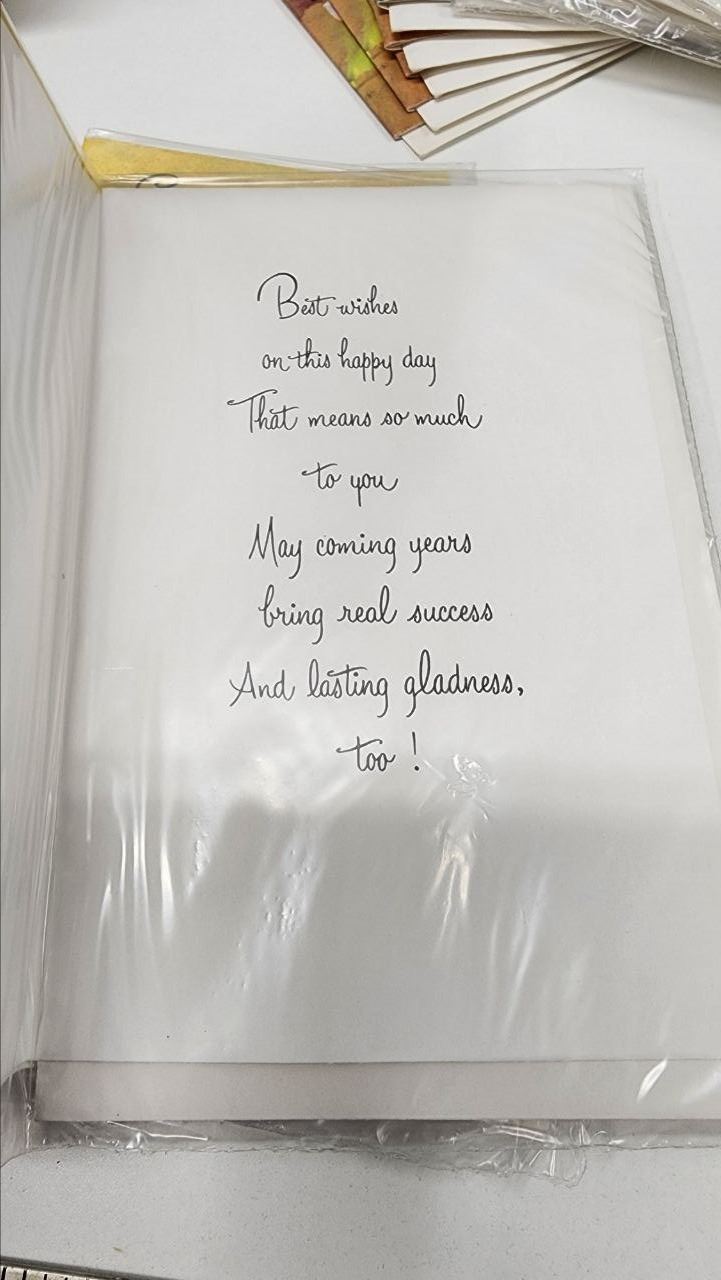 Best wishes
on this happy day
That means so much
to you
May coming years
bring real success
And lasting gladness,
too !